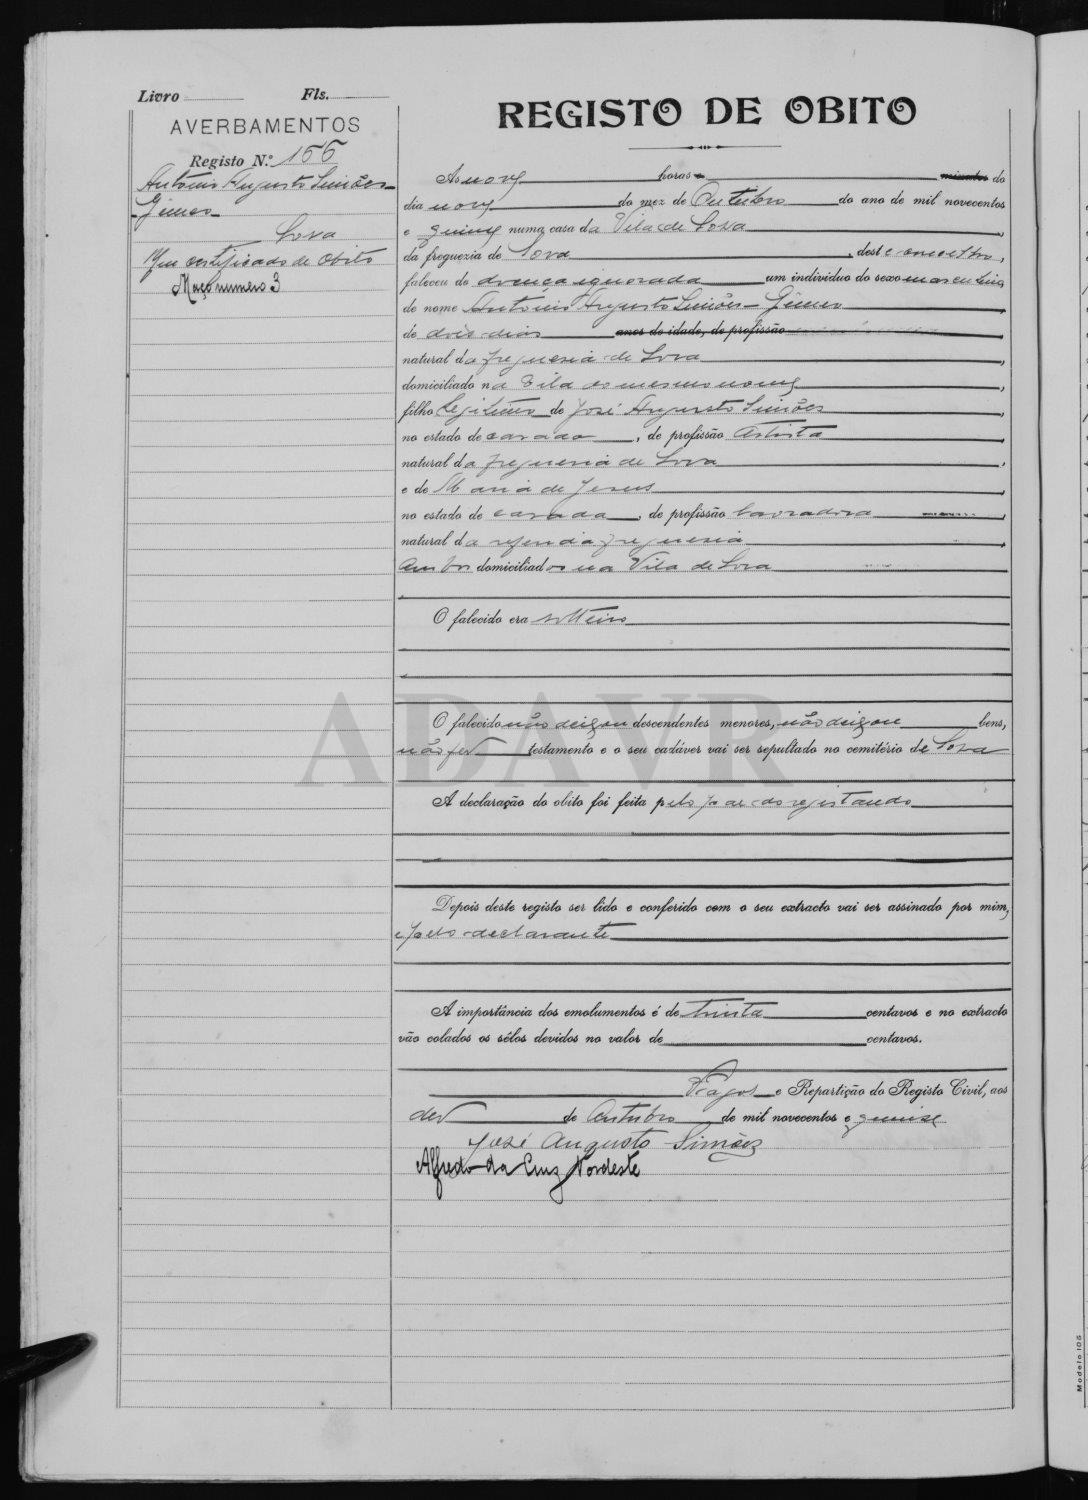 Livro Fls.
AVERBAMENTOS
Registo N.º 155
Antonio Augusto Simões
Gimeo
Sova
Um certificado de obito
Maço numero 3
REGISTO DE OBITO
As nove horas minutos do
dia nove do mez de Outubro do ano de mil novecentos
e quinze numa casa da Vila de Sosa
da freguezia de Sova, deste concelho,
faleceu de doença ignorada um individuo do sexo masculino
de nome Antonio Augusto Simões Gimeo
de dois dias anos de idade, de profissão
natural da freguesia de Sova
domiciliado na Vila do mesmo nome
filho legitimo de José Augusto Simões
no estado de casado, de profissão Artista
natural da freguesia de Sova
e de Maria de Jesus
no estado de casada, de profissão lavradora
natural da referida freguesia
Ambos domiciliados na Vila de Sova
O falecido era solteiro
ADAVR
O falecido não deixou descendentes menores, não deixou bens,
não fez testamento e o seu cadáver vai ser sepultado no cemitério de Sova
A declaração do obito foi feita pelo pae do registando
Depois deste registo ser lido e conferido com o seu extracto vai ser assinado por mim,
e pelo declarante
A importância dos emolumentos é de trinta centavos e no extracto
vão colados os sêlos devidos no valor de centavos.
Vagos e Repartição do Registo Civil, aos
dez de Outubro de mil novecentos e quinze
José Augusto Simões
Alfredo da Cruz Nordeste
Modelo 105